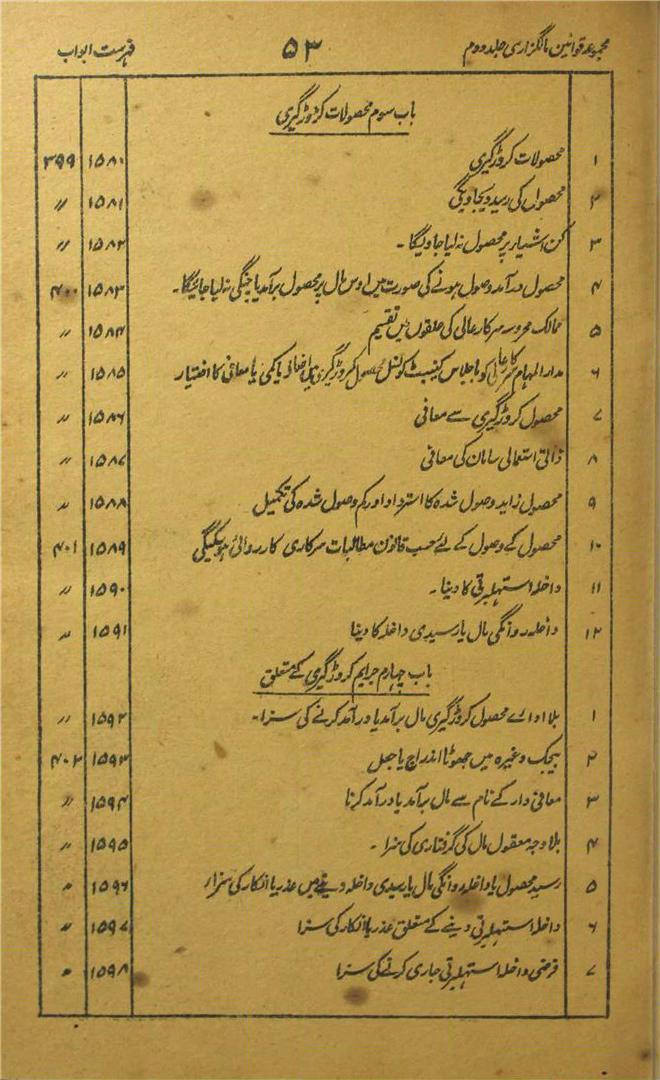 مجموعہ قوانین مالگزاری جلد دوم ۵۳ فہرست ابواب
باب سوم محصولات کڑوڑگیری
۱ محصولات کروڑگیری ۱۵۸۰ ۳۹۹
۲ محصولں کی رسید دیجاویگی ۱۵۸۱ //
۳ کن اشیار پر محصول نہ لیا جاویگا۔ ۱۵۸۲ //
۴ محصول درآمد وصول ہونے کی صورت میں اوس مال پر محصول برآمد یا چنگی نہ لیا جائیگا۔ ۱۵۸۳ ۴۰۰
۵ ممالک محروسہ سرکار عالی کی حلقوں میں تقسیم ۱۵۸۴ //
۶ مدارالمہام سرکار عالی کو باجلاس کیبنٹ کونسل محصول کروڑگیری میں اضافہ یا کمی یا معافی کا اختیار ۱۵۸۵ //
۷ محصول کروڑگیری سے معافی ۱۵۸۶ //
۸ ذاتی استعمالی سامان کی معافی ۱۵۸۷ //
۹ محصول زاید وصول شدہ کا استرداد اور کم وصول شدہ کی تکمیل ۱۵۸۸ //
۱۰ محصول کے وصول کے لئے حسب قانون مطالبات سرکاری کارروائی ہوسکیگی ۱۵۸۹ ۴۰۱
۱۱ داخلہ استہلیرتی کا دینا۔ ۱۵۹۰ //
۱۲ داخلہ روانگی مال یا رسیدی داخلہ کا دینا ۱۵۹۱ //
باب چہارم جرایم کروڑگیری کے متعلق
۱ بلا ادائے محصول کروڑگیری مال برآمد یا درآمد کرنے کی سزا۔ ۱۵۹۲ //
۲ بیجک وغیرہ میں جھوٹا اندراج یا جعل ۱۵۹۳ ۴۰۲
۳ معافی دار کے نام سے مال برآمد یا درآمد کرنا ۱۵۹۴ //
۴ بلا وجہ معقول مال کی گرفتاری کی سزا۔ ۱۵۹۵ //
۵ رسید محصول یا داخلہ روانگی مال یا رسیدی داخلہ دینے میں عذر یا انکار کی سزا ۱۵۹۶ //
۶ داخلہ استہلیرتی دینے کے متعلق عذر یا انکار کی سزا ۱۵۹۷ //
۷ فرضی داخلہ استہلیرتی جاری کرنے کی سزا ۱۵۹۸ //